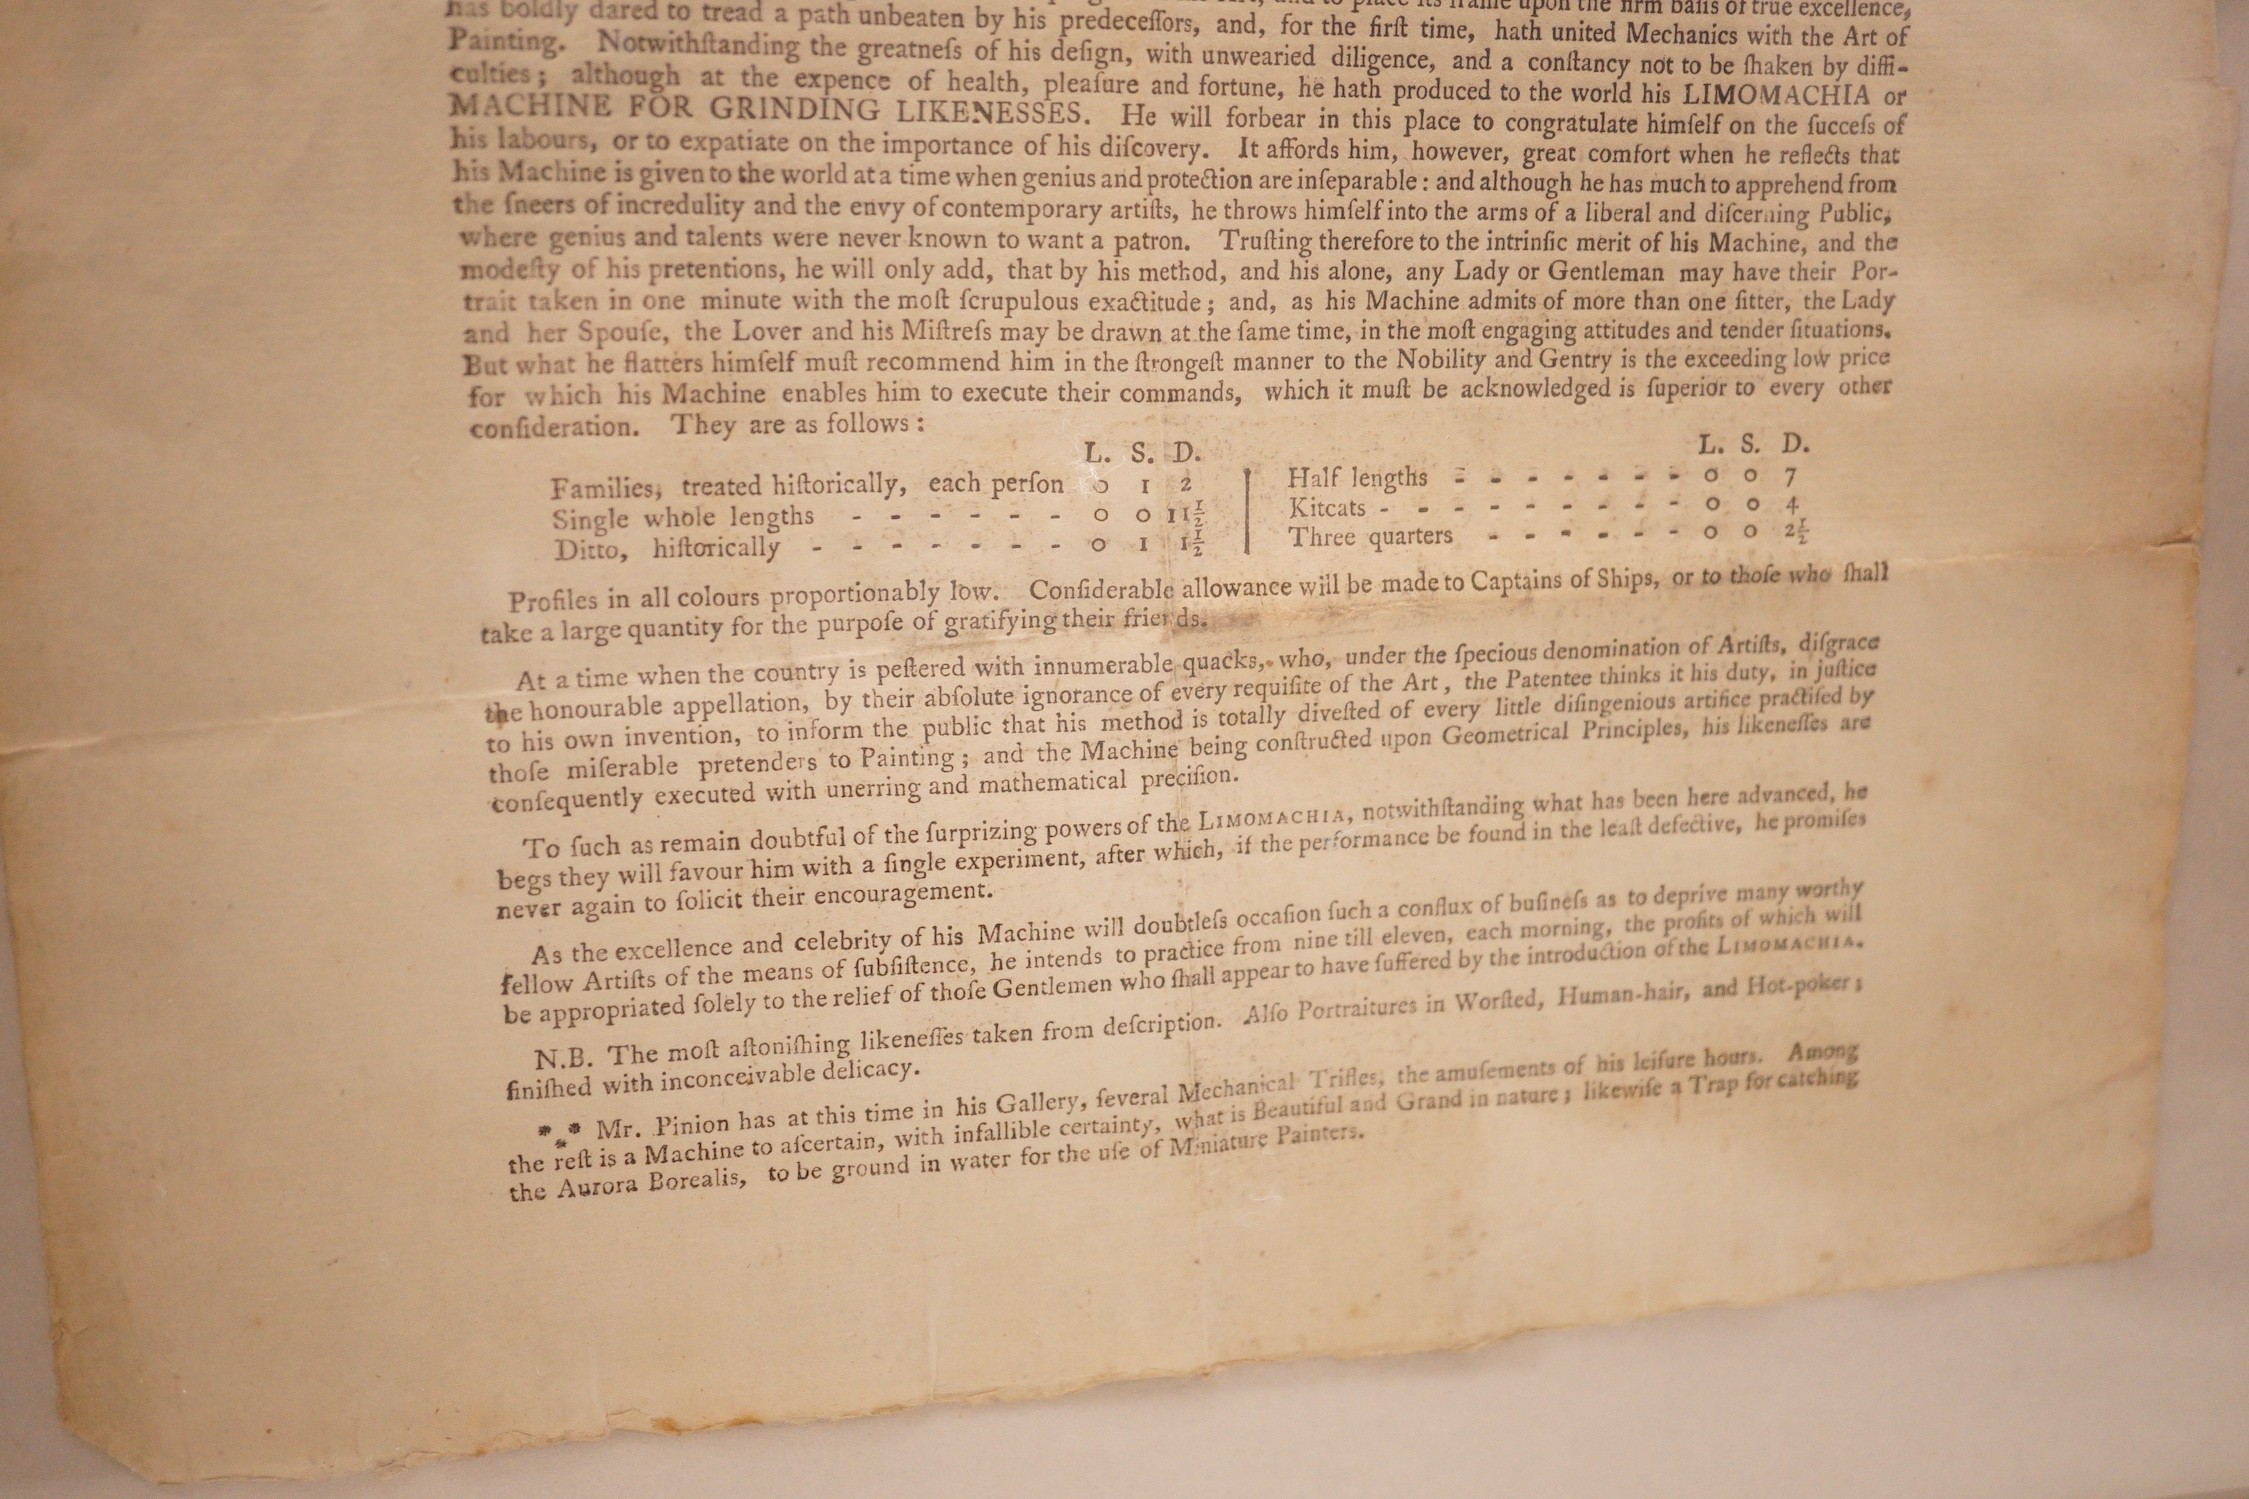 has boldly dared to tread a path unbeaten by his predeceſſors, and, for the firſt time, hath united Mechanics with the Art of
Painting. Notwithſtanding the greatneſs of his deſign, with unwearied diligence, and a conſtancy not to be ſhaken by diffi-
culties; although at the expence of health, pleaſure and fortune, he hath produced to the world his LIMOMACHIA or
MACHINE FOR GRINDING LIKENESSES. He will forbear in this place to congratulate himſelf on the ſucceſs of
his labours, or to expatiate on the importance of his diſcovery. It affords him, however, great comfort when he reflects that
his Machine is given to the world at a time when genius and protection are inſeparable: and although he has much to apprehend from
the ſneers of incredulity and the envy of contemporary artiſts, he throws himſelf into the arms of a liberal and diſcerning Public,
where genius and talents were never known to want a patron. Truſting therefore to the intrinſic merit of his Machine, and the
modeſty of his pretentions, he will only add, that by his method, and his alone, any Lady or Gentleman may have their Por-
trait taken in one minute with the moſt ſcrupulous exactitude; and, as his Machine admits of more than one ſitter, the Lady
and her Spouſe, the Lover and his Miſtreſs may be drawn at the ſame time, in the moſt engaging attitudes and tender ſituations.
But what he flatters himſelf muſt recommend him in the ſtrongeſt manner to the Nobility and Gentry is the exceeding low price
for which his Machine enables him to execute their commands, which it muſt be acknowledged is ſuperior to every other
conſideration. They are as follows:
L. S. D.
Families, treated hiſtorically, each perſon 0 1 2
Single whole lengths - - - - - - 0 0 11½
Ditto, hiſtorically - - - - - - - 0 1 1½
L. S. D.
Half lengths - - - - - - - 0 0 7
Kitcats - - - - - - - - - 0 0 4
Three quarters - - - - - - 0 0 2½
Profiles in all colours proportionably low. Conſiderable allowance will be made to Captains of Ships, or to thoſe who ſhall
take a large quantity for the purpoſe of gratifying their friends.
At a time when the country is peſtered with innumerable quacks, who, under the ſpecious denomination of Artiſts, diſgrace
the honourable appellation, by their abſolute ignorance of every requiſite of the Art, the Patentee thinks it his duty, in juſtice
to his own invention, to inform the public that his method is totally diveſted of every little diſingenious artifice practiſed by
thoſe miſerable pretenders to Painting; and the Machine being conſtructed upon Geometrical Principles, his likeneſſes are
conſequently executed with unerring and mathematical preciſion.
To ſuch as remain doubtful of the ſurprizing powers of the LIMOMACHIA, notwithſtanding what has been here advanced, he
begs they will favour him with a ſingle experiment, after which, if the performance be found in the leaſt defective, he promiſes
never again to ſolicit their encouragement.
As the excellence and celebrity of his Machine will doubtleſs occaſion ſuch a conflux of buſineſs as to deprive many worthy
fellow Artiſts of the means of ſubſiſtence, he intends to practice from nine till eleven, each morning, the profits of which will
be appropriated ſolely to the relief of thoſe Gentlemen who ſhall appear to have ſuffered by the introduction of the LIMOMACHIA.
N.B. The moſt aſtoniſhing likeneſſes taken from deſcription. Alſo Portraitures in Worſted, Human-hair, and Hot-poker;
finiſhed with inconceivable delicacy.
*** Mr. Pinion has at this time in his Gallery, ſeveral Mechanical Trifles, the amuſements of his leiſure hours. Among
the reſt is a Machine to aſcertain, with infallible certainty, what is Beautiful and Grand in nature; likewiſe a Trap for catching
the Aurora Borealis, to be ground in water for the uſe of Miniature Painters.